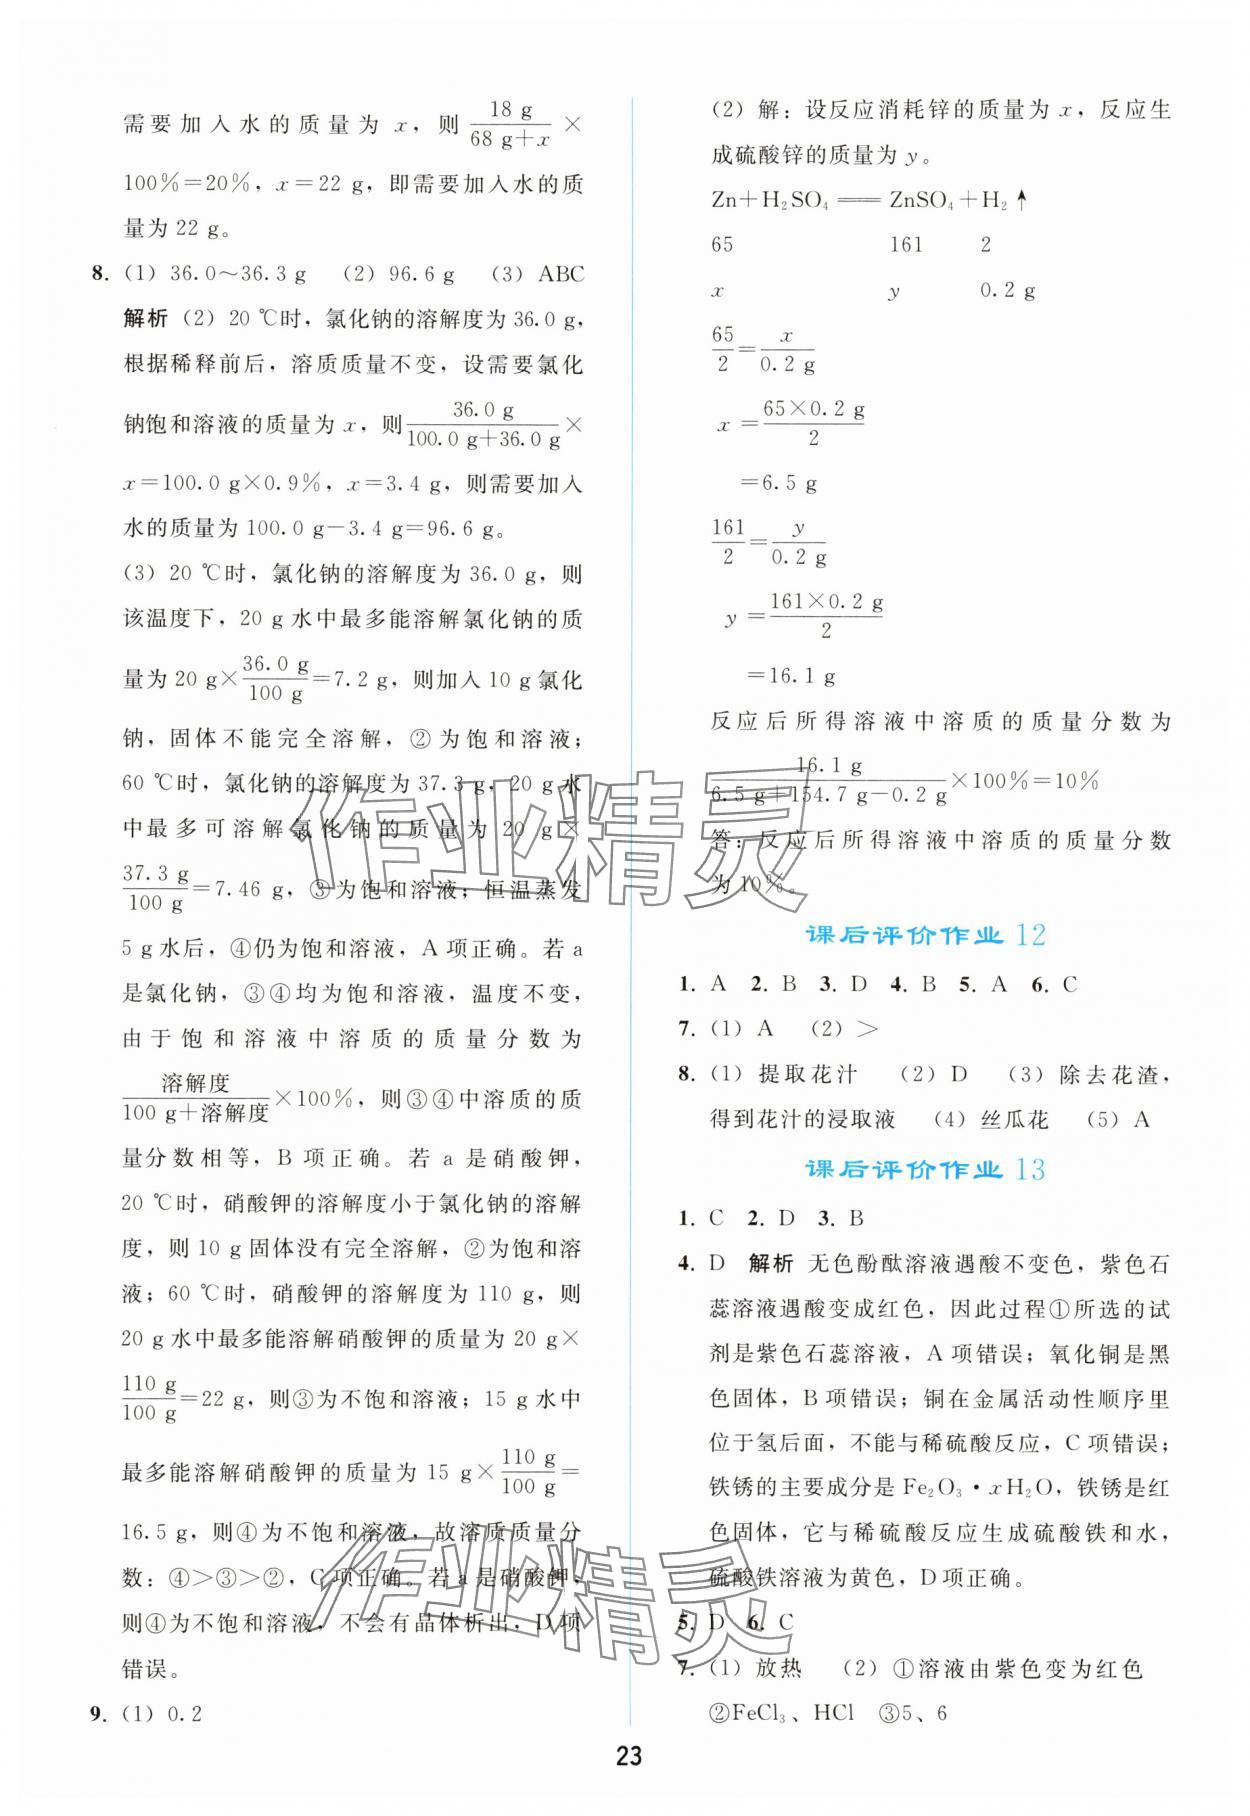 需要加入水的质量为 x，则 18 g/(68 g+x) ×
100％=20％，x=22 g，即需要加入水的质
量为 22 g。
8. (1) 36.0～36.3 g (2) 96.6 g (3) ABC
解析 (2) 20 ℃时，氯化钠的溶解度为 36.0 g，
根据稀释前后，溶质质量不变，设需要氯化
钠饱和溶液的质量为 x，则 36.0 g/(100.0 g+36.0 g) ×
x=100.0 g×0.9％，x=3.4 g，则需要加入
水的质量为 100.0 g－3.4 g=96.6 g。
(3) 20 ℃时，氯化钠的溶解度为 36.0 g，则
该温度下，20 g 水中最多能溶解氯化钠的质
量为 20 g× 36.0 g/100 g =7.2 g，则加入 10 g 氯化
钠，固体不能完全溶解，②为饱和溶液；
60 ℃时，氯化钠的溶解度为 37.3 g，20 g 水
中最多可溶解氯化钠的质量为 20 g×
37.3 g/100 g =7.46 g，③为饱和溶液；恒温蒸发
5 g 水后，④仍为饱和溶液，A 项正确。若 a
是氯化钠，③④均为饱和溶液，温度不变，
由于饱和溶液中溶质的质量分数为
溶解度/(100 g+溶解度) ×100％，则③④中溶质的质
量分数相等，B 项正确。若 a 是硝酸钾，
20 ℃时，硝酸钾的溶解度小于氯化钠的溶解
度，则 10 g 固体没有完全溶解，②为饱和溶
液；60 ℃时，硝酸钾的溶解度为 110 g，则
20 g 水中最多能溶解硝酸钾的质量为 20 g×
110 g/100 g =22 g，则③为不饱和溶液；15 g 水中
最多能溶解硝酸钾的质量为 15 g× 110 g/100 g =
16.5 g，则④为不饱和溶液，故溶质质量分
数：④>③>②，C 项正确。若 a 是硝酸钾，
则④为不饱和溶液，不会有晶体析出，D 项
错误。
9. (1) 0.2
(2) 解：设反应消耗锌的质量为 x，反应生
成硫酸锌的质量为 y。
Zn+H₂SO₄ ══ ZnSO₄+H₂↑
65 161 2
x y 0.2 g
65/2 = x/0.2 g
x = 65×0.2 g/2
=6.5 g
161/2 = y/0.2 g
y = 161×0.2 g/2
=16.1 g
反应后所得溶液中溶质的质量分数为
16.1 g/(6.5 g+154.7 g－0.2 g) ×100％=10％
答：反应后所得溶液中溶质的质量分数
为 10％。
课后评价作业 12
1. A 2. B 3. D 4. B 5. A 6. C
7. (1) A (2) >
8. (1) 提取花汁 (2) D (3) 除去花渣，
得到花汁的浸取液 (4) 丝瓜花 (5) A
课后评价作业 13
1. C 2. D 3. B
4. D 解析 无色酚酞溶液遇酸不变色，紫色石
蕊溶液遇酸变成红色，因此过程①所选的试
剂是紫色石蕊溶液，A 项错误；氧化铜是黑
色固体，B 项错误；铜在金属活动性顺序里
位于氢后面，不能与稀硫酸反应，C 项错误；
铁锈的主要成分是 Fe₂O₃·xH₂O，铁锈是红
色固体，它与稀硫酸反应生成硫酸铁和水，
硫酸铁溶液为黄色，D 项正确。
5. D 6. C
7. (1) 放热 (2) ①溶液由紫色变为红色
②FeCl₃、HCl ③5、6
23
作业精灵
作业精灵